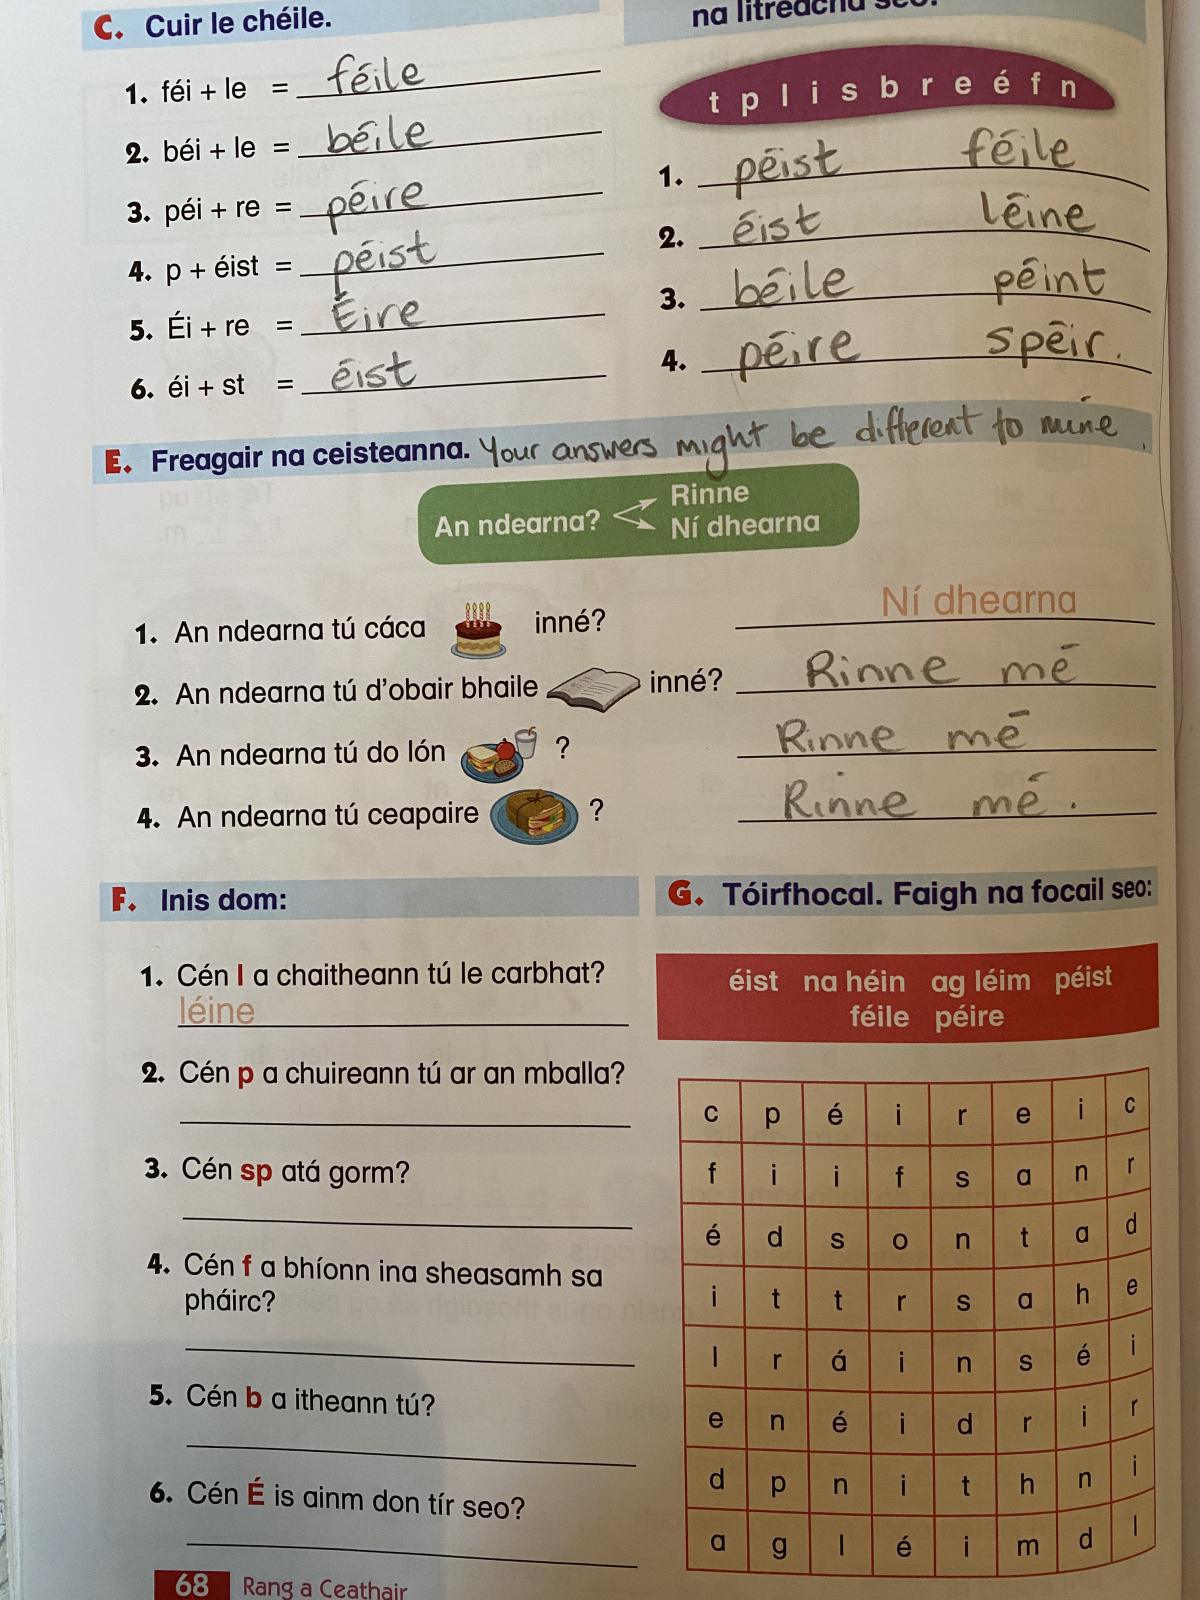 C. Cuir le chéile.
1. féi + le = féile
2. béi + le = béile
3. péi + re = péire
4. p + éist = péist
5. Éi + re = Éire
6. éi + st = éist
na litreacha seo.
t p l i s b r e é f n
1. péist féile
2. éist léine
3. béile péint
4. péire spéir.
E. Freagair na ceisteanna. Your answers might be different to mine.
An ndearna? Rinne
Ní dhearna
1. An ndearna tú cáca inné? Ní dhearna
2. An ndearna tú d'obair bhaile inné? Rinne mé
3. An ndearna tú do lón ? Rinne mé
4. An ndearna tú ceapaire ? Rinne mé.
F. Inis dom:
1. Cén l a chaitheann tú le carbhat?
léine
2. Cén p a chuireann tú ar an mballa?
3. Cén sp atá gorm?
4. Cén f a bhíonn ina sheasamh sa
pháirc?
5. Cén b a itheann tú?
6. Cén É is ainm don tír seo?
G. Tóirfhocal. Faigh na focail seo:
éist na héin ag léim péist
féile péire
c p é i r e i c
f i i f s a n r
é d s o n t a d
i t t r s a h e
l r á i n s é i
e n é i d r i r
d p n i t h n i
a g l é i m d l
68 Rang a Ceathair